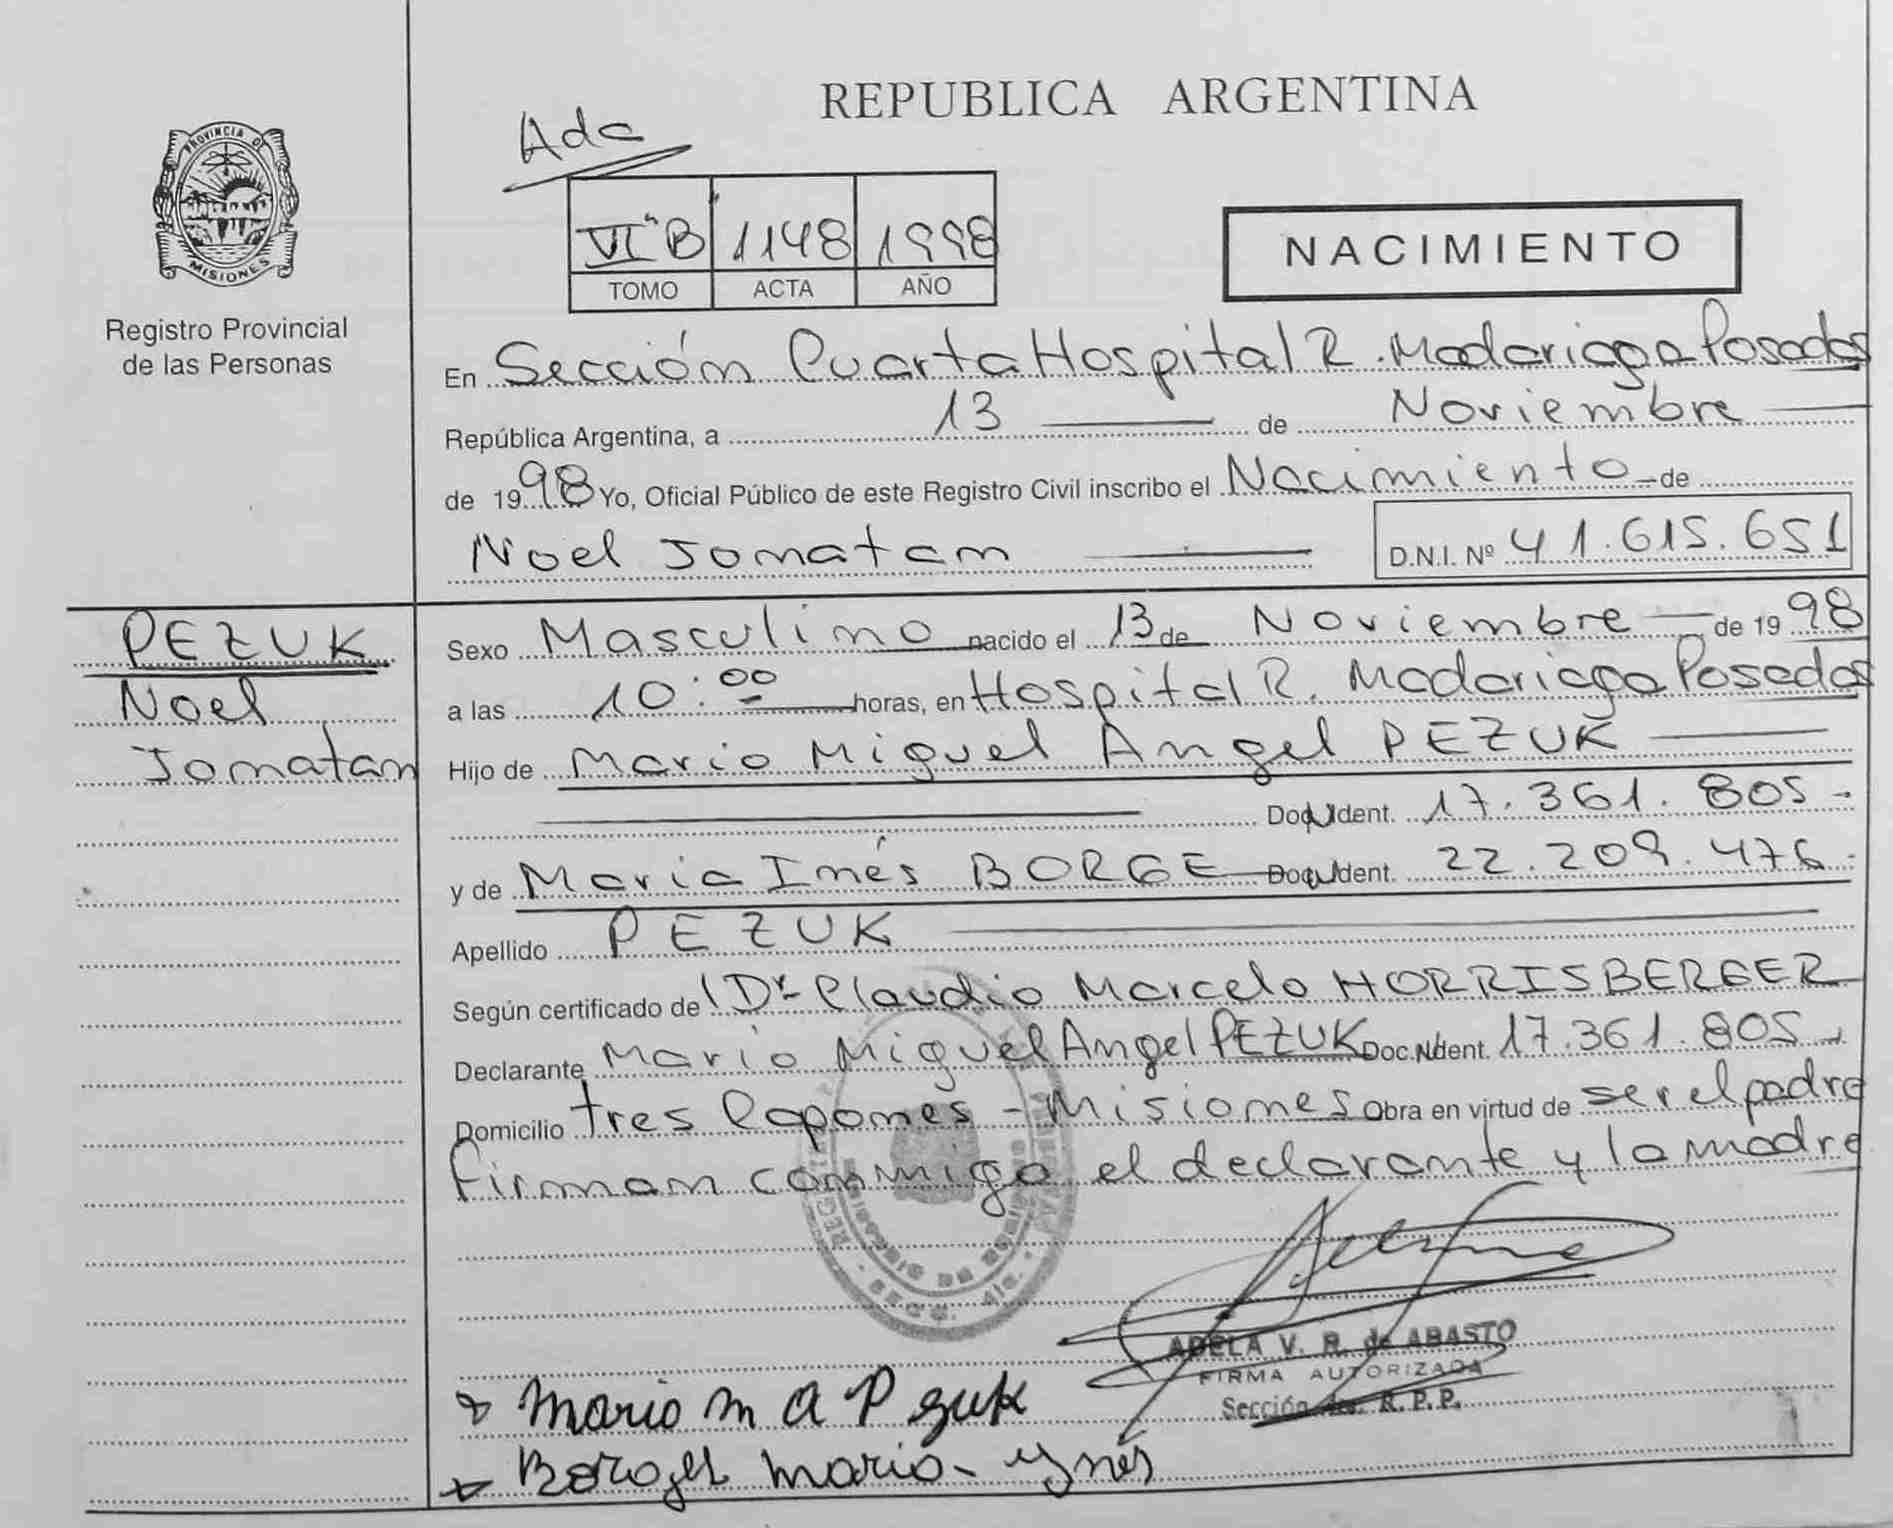 PROVINCIA D
MISIONES
Registro Provincial
de las Personas
REPUBLICA ARGENTINA
Ada
VI"B 1148 1998
TOMO ACTA AÑO
NACIMIENTO
En Sección Cuarta Hospital R. Madariaga Posadas
República Argentina, a 13 de Noviembre
de 1998 Yo, Oficial Público de este Registro Civil inscribo el Nacimiento de
Noel Jonatan
D.N.I. Nº 41.615.651
PEZUK
Noel
Jonatan
Sexo Masculino nacido el 13 de Noviembre de 1998
a las 10:00 horas, en Hospital R. Madariaga Posadas
Hijo de Mario Miguel Angel PEZUK
Doc. Ident. 17.361.805-
y de María Inés BORGE Doc. Ident. 22.209.476-
Apellido PEZUK
Según certificado de Dr Claudio Marcelo HORRISBERGER
Declarante Mario Miguel Angel PEZUK Doc. Ident. 17.361.805-
Domicilio tres Capones - Misiones Obra en virtud de ser el padre
firman conmigo el declarante y la madre
ADELA V. R. de ABASTO
FIRMA AUTORIZADA
Sección 4ta. R. P. P.
Mario M A Pezuk
Borges Maria Ynés